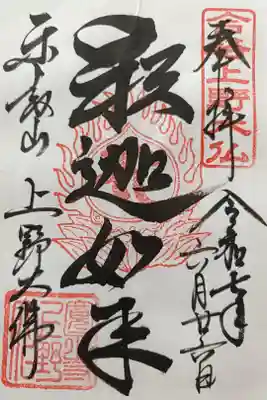 合格上野大仏
奉拝
令和七年
六月廿六日
釈迦如来
东叡山
上野大佛